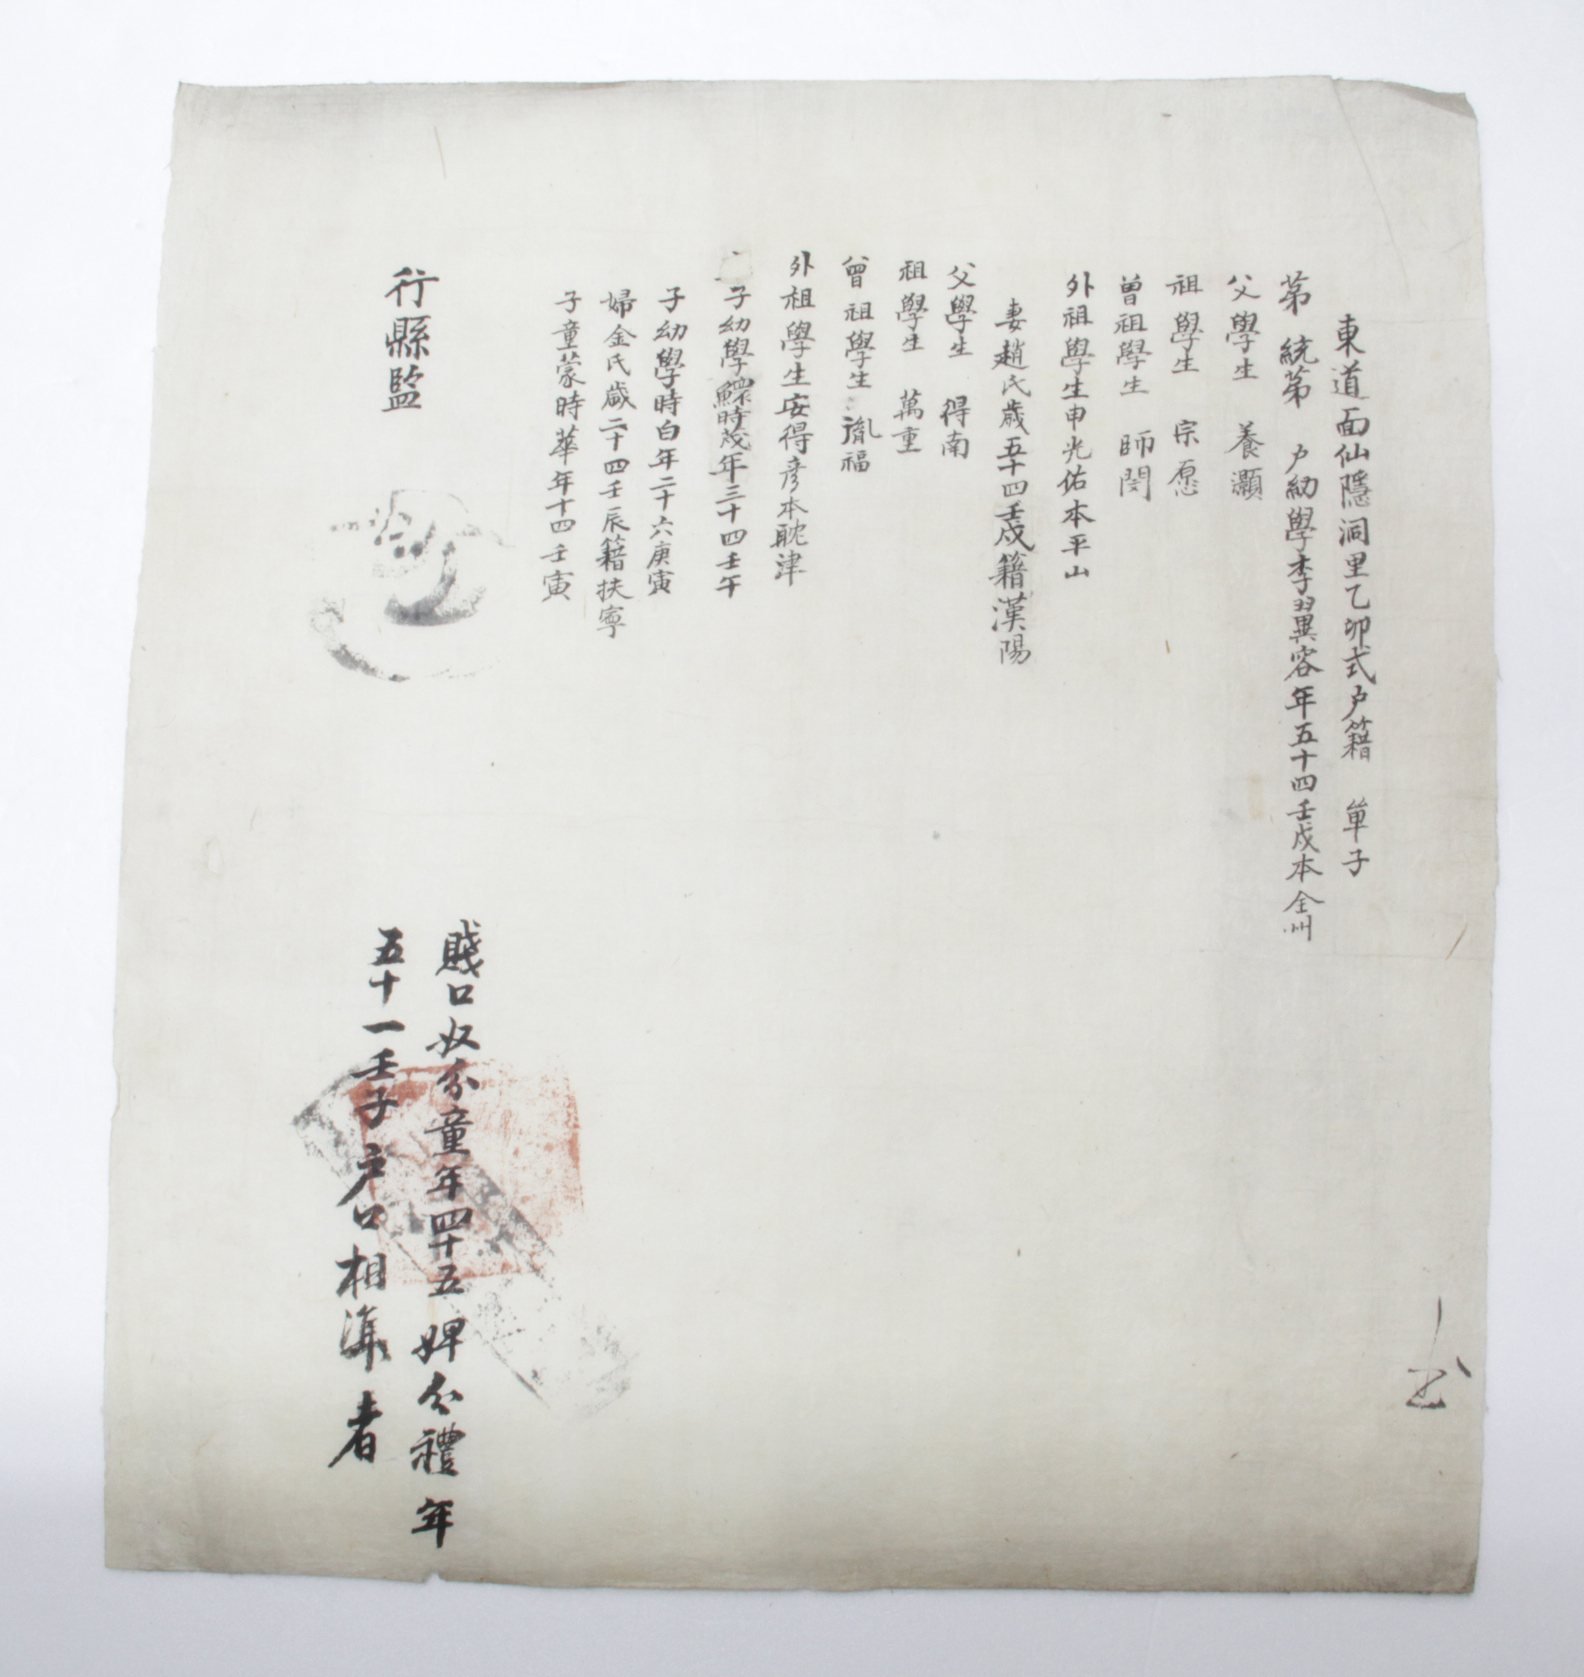 東道面仙隱洞里乙卯式户籍 單子
第 統第 户幼學李翼容年五十四壬戌本全州
父學生 養灝
祖學生 宗愿
曾祖學生 師閔
外祖學生申光佑本平山
妻趙氏歲五十四壬戌籍漢陽
父學生 得南
祖學生 萬重
曾祖學生 胤福
外祖學生安得彦本耽津
子幼學鰥時茂年三十四壬午
子幼學時白年二十六庚寅
婦金氏歲二十四壬辰籍扶寧
子童蒙時華年十四壬寅
行縣監
賤口奴介童年四十五 婢介禮年
五十一壬子户口相準者